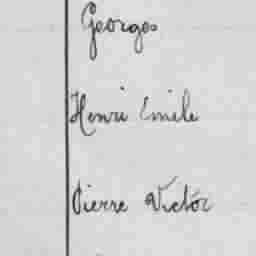 Georges
Henri Emile
Pierre Victor